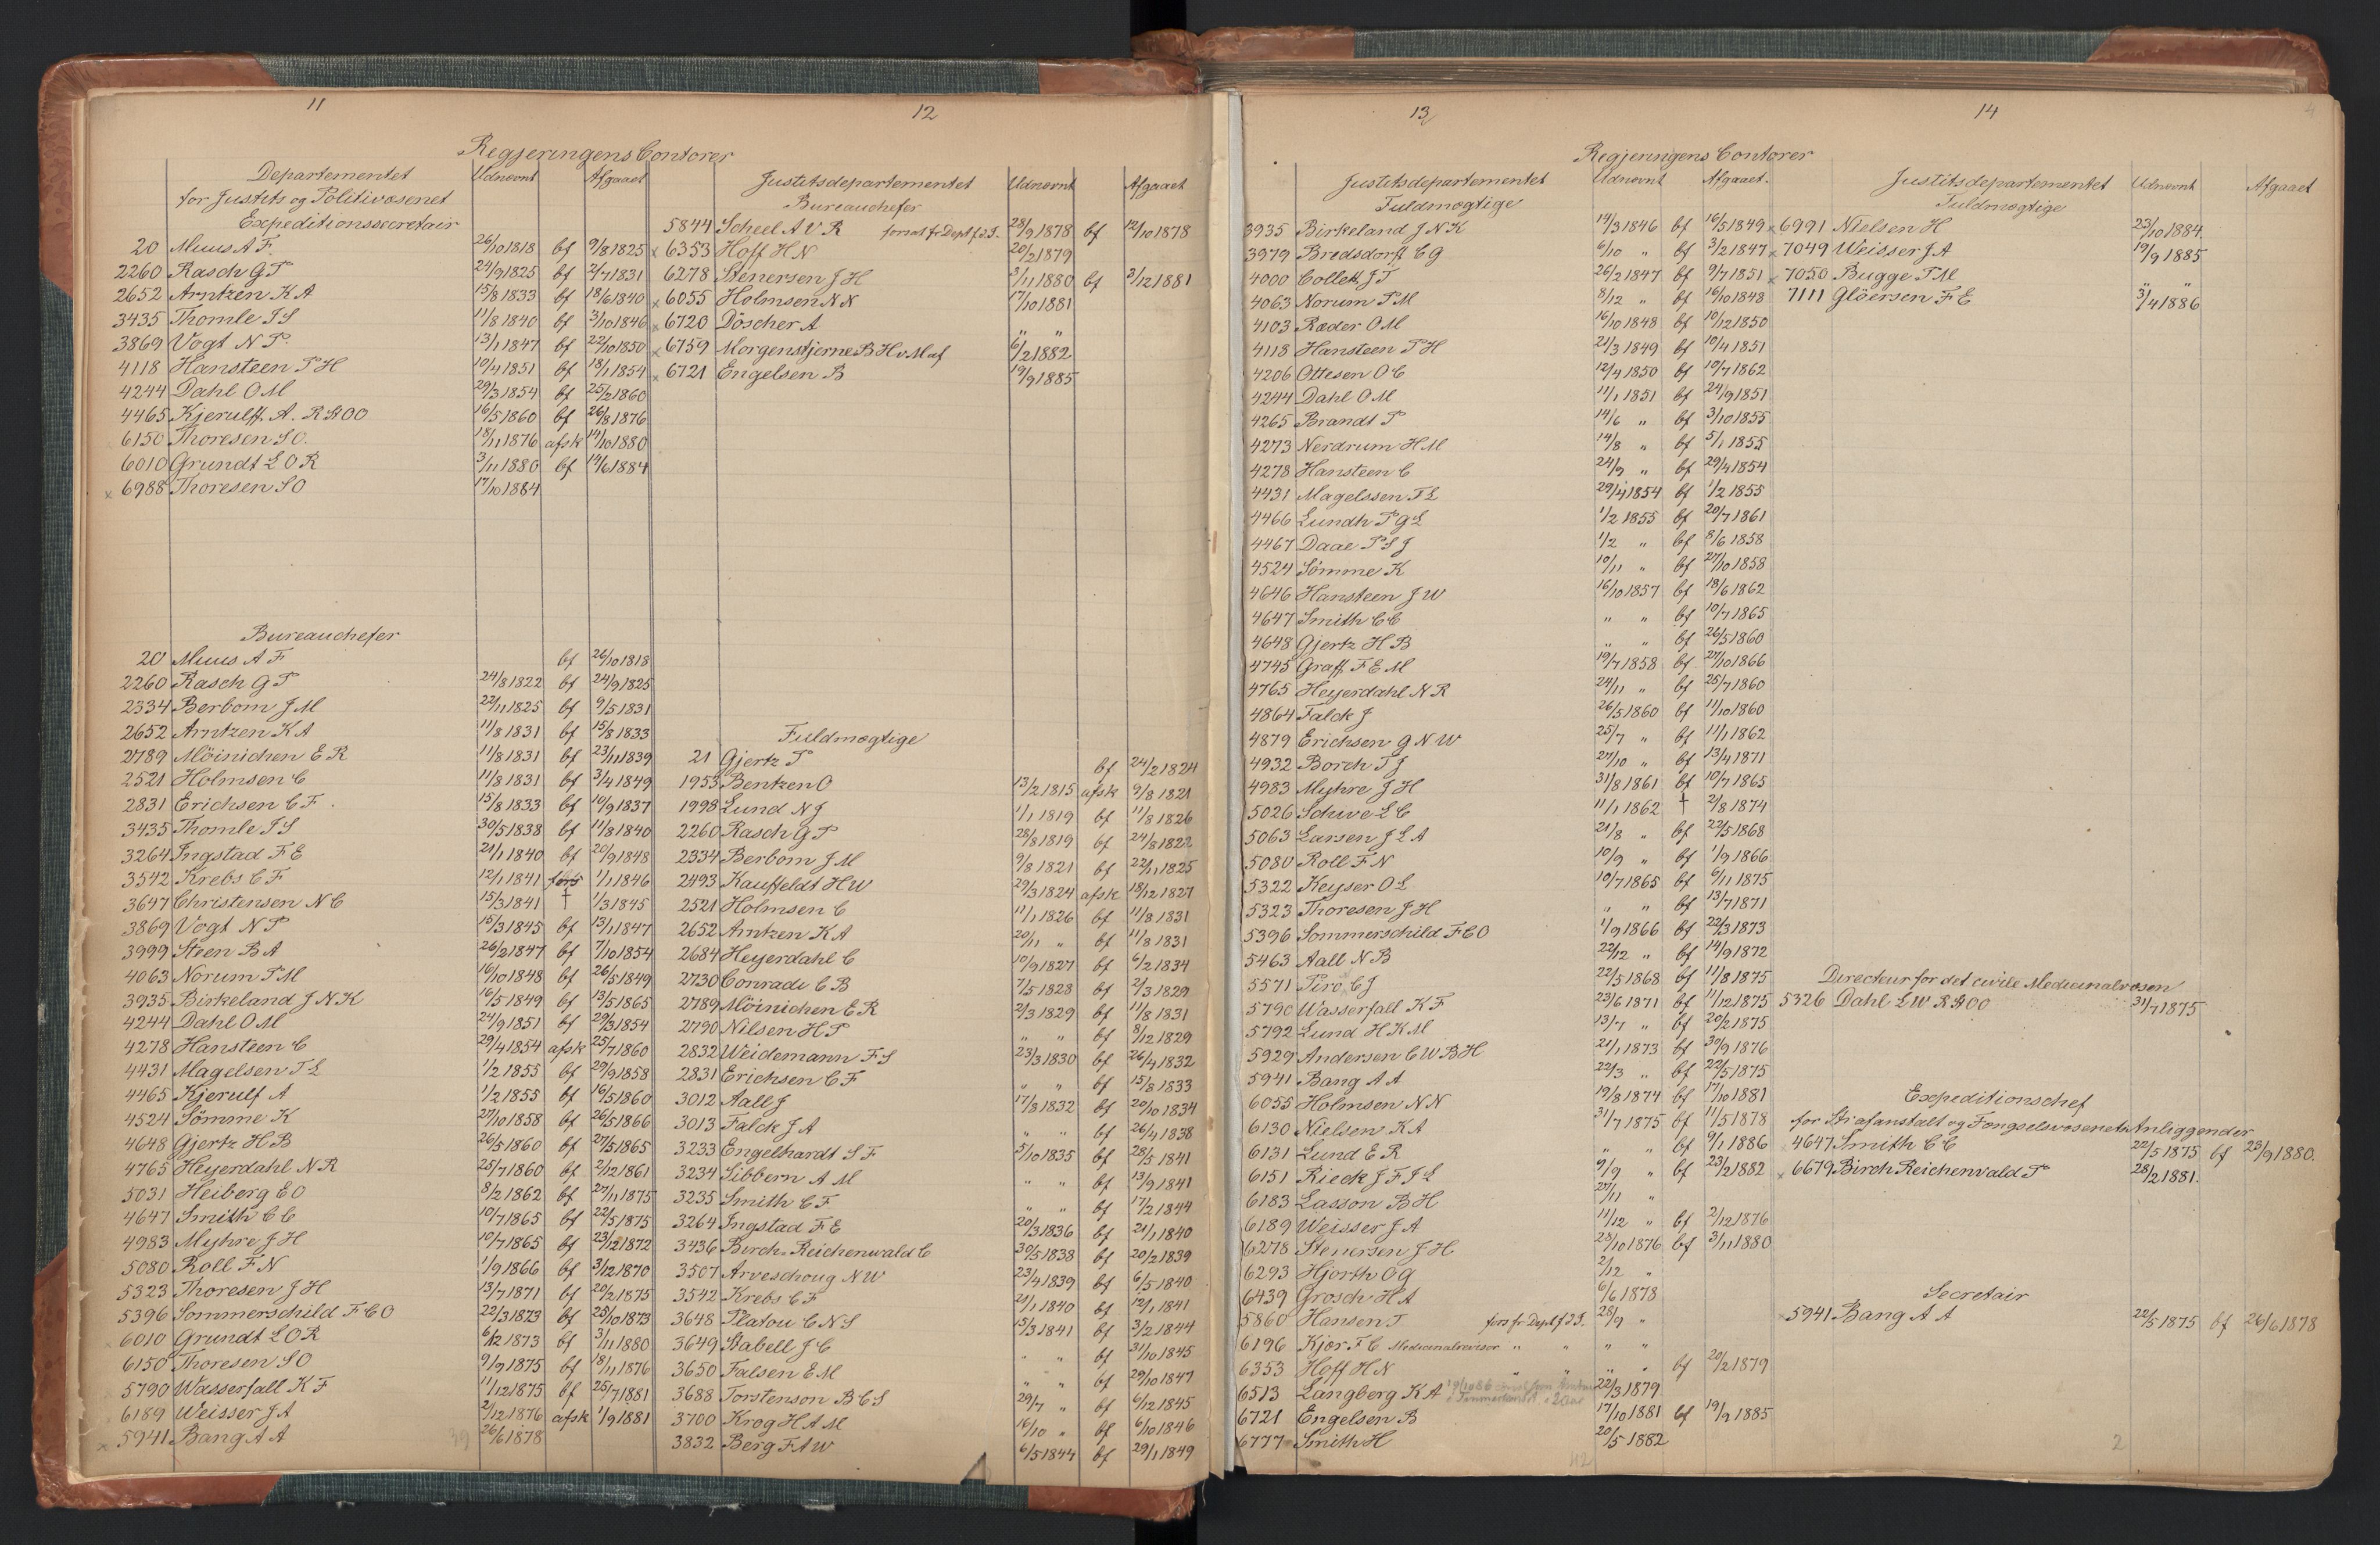 11
Regjeringens Contorer
Departementet Udnævnt Afgaaet
for Justits og Politivæsenet
Expeditionssecretair
20 Muus A F. 26/10 1818 bf 9/8 1825
2260 Rasch G P 24/9 1825 bf 2/7 1831
2652 Arntzen K A 15/8 1833 bf 18/6 1840
3435 Thomle I S 11/8 1840 bf 3/10 1846
3869 Vogt N P. 13/1 1847 bf 22/10 1850
4118 Hansteen P H 10/4 1851 bf 18/1 1854
4244 Dahl O M 29/3 1854 bf 25/2 1860
4465 Kjerulff. A. R St OO 16/5 1860 bf 26/8 1876
6150 Thoresen S O. 18/11 1876 afsk 14/10 1880
6010 Grundt L O R 3/11 1880 bf 14/6 1884
x 6988 Thoresen S O 17/10 1884
Bureauchefer
20 Muus A F bf 26/10 1818
2260 Rasch G P 24/8 1822 bf 24/9 1825
2334 Berbom J M 22/11 1825 bf 9/5 1831
2652 Arntzen K A 11/8 1831 bf 15/8 1833
2789 Möinichen E R 11/8 1831 bf 23/11 1839
2521 Holmsen C 11/8 1831 bf 3/4 1849
2831 Erichsen C F. 15/8 1833 bf 10/9 1837
3435 Thomle I S 30/5 1838 bf 11/8 1840
3264 Ingstad F E 21/1 1840 bf 20/9 1848
3542 Krebs C F 12/1 1841 fors 1/1 1846
3647 Christensen N C 15/3 1841 † 1/3 1845
3869 Vogt N P 15/3 1845 bf 13/1 1847
3999 Steen B A 26/2 1847 bf 7/10 1854
4063 Norum P M 16/10 1848 bf 26/5 1849
3935 Birkeland J N K 16/5 1849 bf 13/5 1865
4244 Dahl O M 24/9 1851 bf 29/3 1854
4278 Hansteen C 29/4 1854 afsk 25/7 1860
4431 Magelsen T L 1/2 1855 bf 29/9 1858
4465 Kjerulf A 1/2 1855 bf 16/5 1860
4524 Sömme K 27/10 1858 bf 26/5 1866
4648 Gjertz H B 26/5 1860 bf 27/5 1865
4765 Heyerdahl N R 25/7 1860 bf 2/12 1861
5031 Heiberg E O 8/2 1862 bf 27/11 1875
4647 Smith C C 10/7 1865 bf 22/5 1875
4983 Myhre J H 10/7 1865 bf 23/12 1872
5080 Roll F N 1/9 1866 bf 3/12 1870
5323 Thoresen J H 13/7 1871 bf 20/2 1875
5396 Sommerschild F C O 22/3 1873 bf 25/10 1873
x 6010 Grundt L O R 6/12 1873 bf 3/11 1880
6150 Thoresen S O 9/9 1875 bf 18/11 1876
5790 Wasserfall K F 11/12 1875 bf 25/7 1881
6189 Weisser J A 2/12 1876 afsk 1/9 1881
x 5941 Bang A A 39 26/6 1878
12
Justitsdepartementet Udnævnt Afgaaet
Bureauchefer
5844 Scheel A V R forsat fr Dept f I I. 28/9 1878 bf 12/10 1878
x 6353 Hoff H N 20/2 1879
6278 Stenersen J H 3/11 1880 bf 3/12 1881
x 6055 Holmsen N N 17/10 1881
x 6720 Döscher A " "
x 6759 Morgenstjerne B H v M af 6/2 1882
x 6721 Engelsen B 19/9 1885
Fuldmægtige
21 Gjertz P bf 24/2 1824
1953 Bentzen O 13/2 1815 afsk 9/8 1821
1998 Lund N J 1/1 1819 bf 11/8 1826
2260 Rasch G P 28/8 1819 bf 24/8 1822
2334 Berbom J M 9/8 1821 bf 22/11 1825
2493 Kauffeldt H W 29/3 1824 afsk 18/12 1827
2521 Holmsen C 11/1 1826 bf 11/8 1831
2652 Arntzen K A 20/11 " bf 11/8 1831
2684 Heyerdahl C 10/9 1827 bf 6/2 1834
2730 Conradi C B 7/5 1828 bf 2/3 1829
2789 Möinichen E R 2/3 1829 bf 11/8 1831
2790 Nilsen H P " " bf 8/12 1829
2832 Weidemann F S 23/3 1830 bf 26/4 1832
2831 Erichsen C F " " bf 15/8 1833
3012 Aall J 17/8 1832 bf 20/10 1834
3013 Falck J A " " bf 26/4 1838
3233 Engelhardt S F 5/10 1835 bf 28/5 1841
3234 Sibbern A M " " bf 13/9 1841
3235 Smith C F " " bf 17/2 1844
3264 Ingstad F E 20/3 1836 bf 21/1 1840
3436 Birch-Reichenwald C 30/5 1838 bf 20/2 1839
3507 Arveschoug N W 23/4 1839 bf 6/5 1840
3542 Krebs C F 21/1 1840 bf 12/1 1841
3648 Platou C N S 15/3 1841 bf 3/2 1844
3649 Stabell J C " " bf 31/10 1845
3650 Falsen E M " " bf 29/10 1847
3688 Torstenson B C S 29/7 " bf 6/12 1845
3700 Krog H A M 16/10 " bf 6/10 1846
3832 Berg F A W 6/5 1844 bf 29/1 1849
13
Regjeringens Contorer
Justitsdepartementet Udnævnt Afgaaet.
Fuldmægtige
3935 Birkeland J N K 14/3 1846 bf 16/5 1849
3979 Bredsdorff C G 6/10 " bf 3/2 1847
4000 Collett J T 26/2 1847 bf 9/7 1851
4063 Norum P M 8/12 " bf 16/10 1848
4103 Ræder O M 16/10 1848 bf 10/12 1850
4118 Hansteen P H 21/3 1849 bf 10/4 1851
4206 Ottesen O C 12/4 1850 bf 10/7 1862
4244 Dahl O M 11/1 1851 bf 24/9 1851
4265 Brandt P 14/6 " bf 3/10 1855
4273 Nerdrum H M 14/8 " bf 5/1 1855
4278 Hansteen C 24/9 " bf 29/4 1854
4431 Magelssen T L 29/4 1854 bf 1/2 1855
4466 Lundh P G L 1/2 1855 bf 20/7 1861
4467 Daae P S J 1/2 " bf 8/6 1858
4524 Sömme K 10/11 " bf 27/10 1858
4646 Hansteen J W 16/10 1857 bf 18/6 1862
4647 Smith C C " " bf 10/7 1865
4648 Gjertz H B " " bf 26/5 1860
4745 Graff F E M 19/7 1858 bf 27/10 1866
4765 Heyerdahl N R 24/11 " bf 25/7 1860
4864 Falck J 26/5 1860 bf 11/10 1860
4879 Erichsen G N W 25/7 " bf 11/1 1862
4932 Borch T J 27/10 " bf 13/4 1871
4983 Myhre J H 31/8 1861 bf 10/7 1865
5026 Schive L C 11/1 1862 † 2/8 1874
5063 Larsen J L A 21/8 " bf 22/5 1868
5080 Roll F N 10/9 " bf 1/9 1866
5322 Keyser O L 10/7 1865 bf 6/11 1875
5323 Thoresen J H " " bf 13/7 1871
5396 Sommerschild F C O 1/9 1866 bf 22/3 1873
5463 Aall N B 22/12 " bf 14/9 1872
5571 Piro C J 22/5 1868 bf 11/8 1875
5790 Wasserfall K F 23/6 1871 bf 11/12 1875
5792 Lund H K M 13/7 " bf 20/2 1875
5929 Andersen C W B H 21/1 1873 bf 30/9 1876
5941 Bang A A 22/3 " bf 22/5 1875
6055 Holmsen N N 19/8 1874 bf 17/10 1881
6130 Nielsen K A 31/7 1875 bf 11/5 1878
6131 Lund E R " " bf 9/1 1886
6151 Rieck J F J L 9/9 " bf 23/2 1882
6183 Lasson B H 27/11 "
6189 Weisser J A 11/12 " bf 2/12 1876
6278 Stenersen J H 28/10 1876 bf 3/11 1880
6293 Hjorth O G 2/12 "
6439 Grosch H A 6/6 1878
5860 Hansen T fors fr Dept f I I. 28/9 "
6196 Kjær F C Medicinalrevisor " " " "
6353 Hoff H N " " " " bf 20/2 1879
6513 Langberg K A 22/3 1879
6721 Engelsen B 17/10 1881 bf 19/9 1885
6777 Smith H 20/5 1882
42
14
4
Justitsdepartementet Udnævnt Afgaaet
Fuldmægtige
x 6991 Nielsen H 23/10 1884
x 7049 Weisser J A 19/9 1885
x 7050 Bugge P M " "
7111 Glöersen F E 3/4 1886
Directeur for det civile Medicinalvæsen
5326 Dahl L W R St OO 31/7 1875
Expeditionschef
for Strafanstalt og Fængselsvæsenets Anliggender
x 4647 Smith C C 22/5 1875 bf 23/9 1880.
x 6679 Birch Reichenwald P 28/2 1881.
Secretair
x 5941 Bang A A 22/5 1875 bf 26/6 1878
2